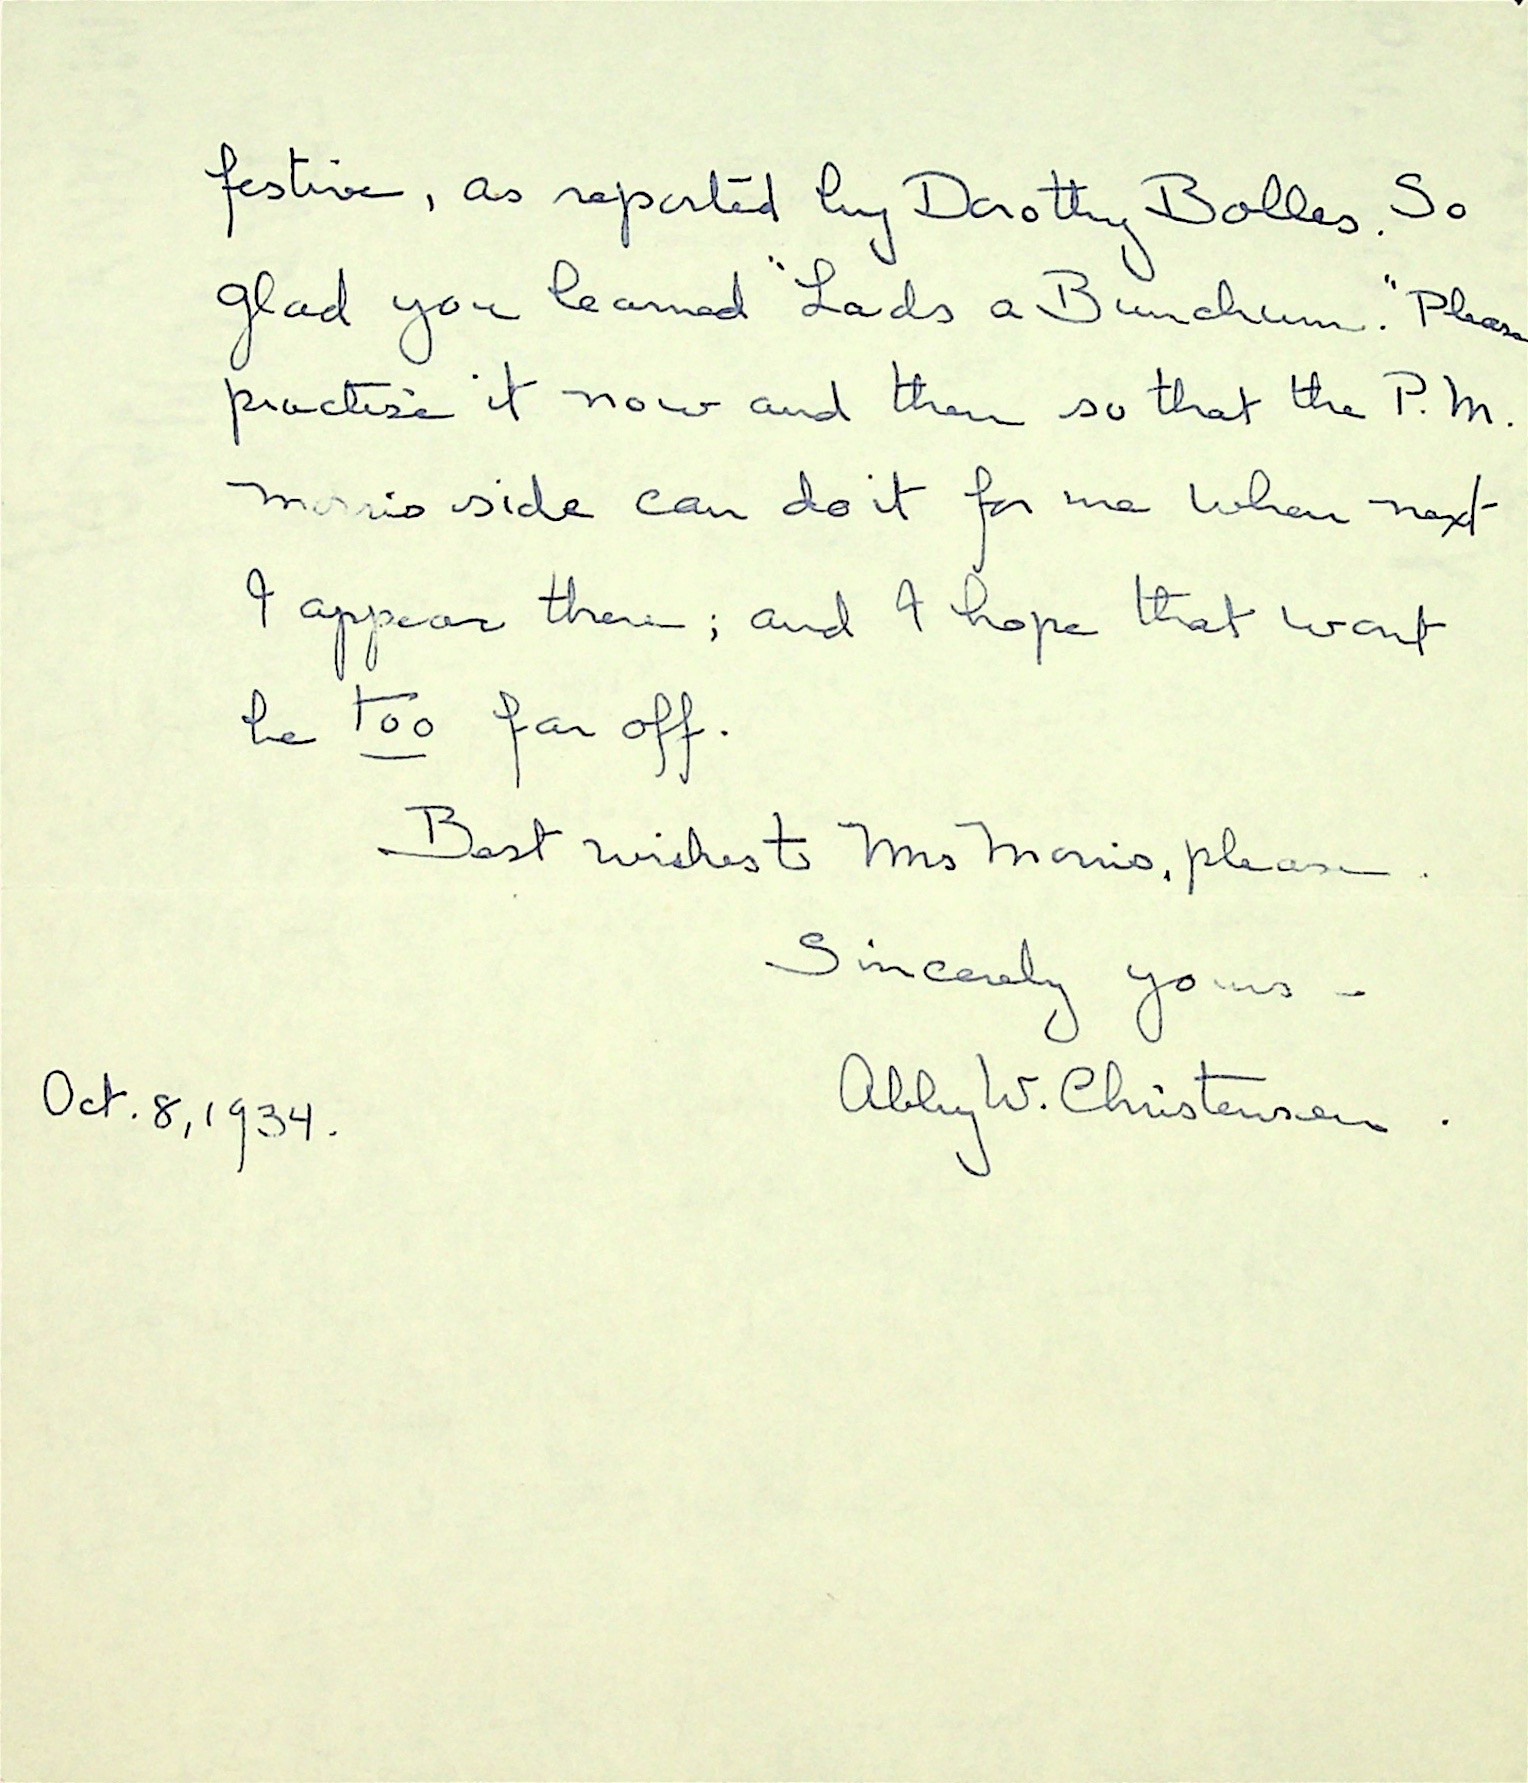 festive, as reported by Dorothy Bolles. So
glad you learned "Lads a Bunchum." Please
practise it now and then so that the P.M.
morris side can do it for me when next
I appear there; and I hope that wont
be too far off.
Best wishes to Mrs Morris, please.
Sincerely yours -
Abby W. Christensen.
Oct. 8, 1934.